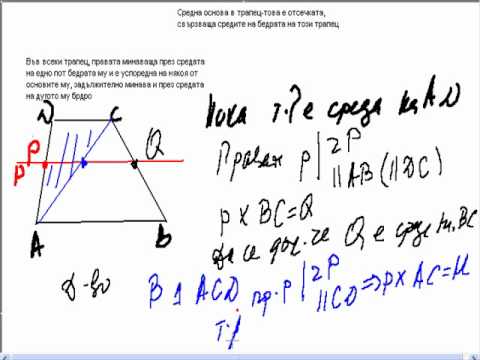 Средна основа в трапец-това е отсечката,
свързваща средите на бедрата на този трапец
Във всеки трапец, правата минаваща през средата
на едно пот бедрата му и е успоредна на някоя от
основите му, задължително минава и през средата
на дугото му брдро
D C
P Q
p
A B
Нека т.P е среда на AD
Правах p | ZP
|| AB (|| DC)
p x BC = Q
Да се док-че Q е среда на BC
Д-во
В Δ ACD пр.p | ZP
|| CD => p x AC = M
т.